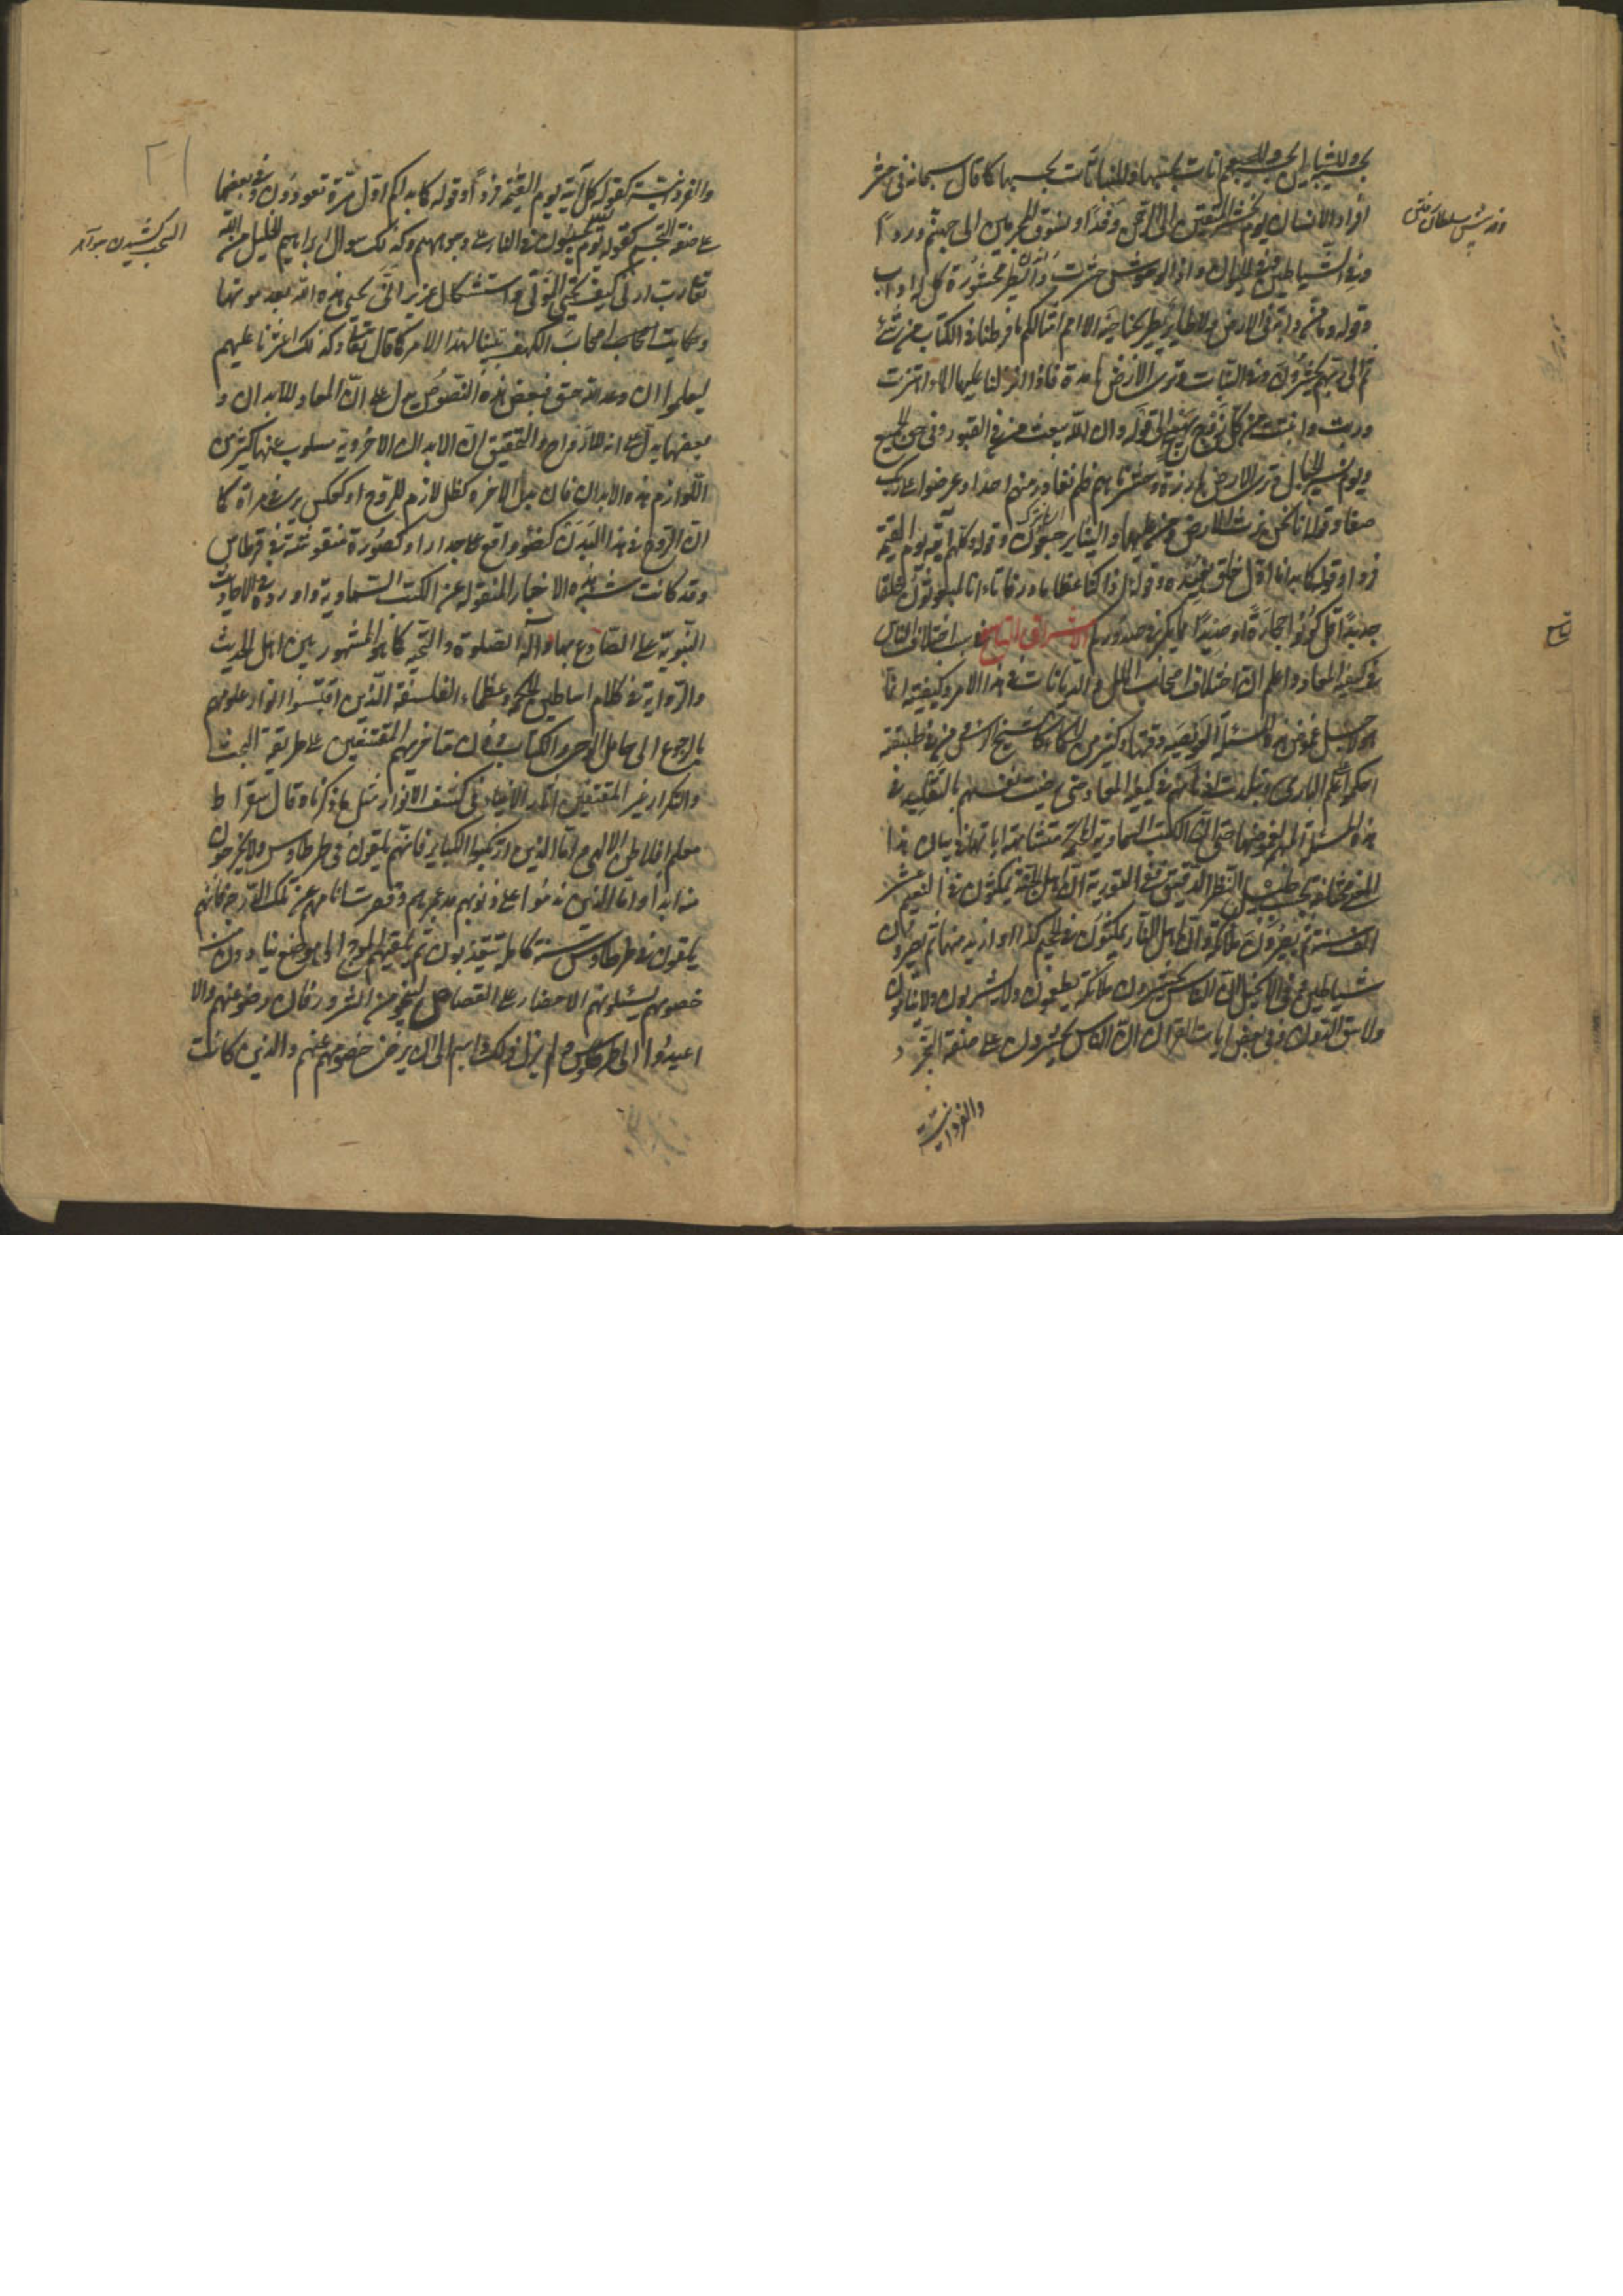 بحسبها وللشياطين بحسبها وللحيوانات بحسبها وللنباتات بحسبها كما قال سبحانه فى حشر
افراد الانسان يوم نحشر المتقين الى الرحمن وفدا ونسوق المجرمين الى جهنم وردا
وفى الشياطين واذا الوحوش حشرت والطير محشورة كل له اواب
وقوله وما من دابة فى الارض ولا طاير يطير بجناحيه الا امم امثالكم ما فرطنا فى الكتاب من شئ
ثم الى ربهم يحشرون وفى النبات وترى الارض هامدة فاذا انزلنا عليها الماء اهتزت
وربت وانبتت من كل زوج بهيج الى قوله وان الله يبعث من فى القبور وفى حق الجميع
ويوم نسير الجبال وترى الارض بارزة وحشرناهم فلم نغادر منهم احدا وعرضوا على ربك
صفا وقوله انا نحن نرث الارض ومن عليها والينا يرجعون وقوله وكلهم آتيه يوم القيمة
فردا وقوله كما بدانا اول خلق نعيده وقوله ائذا كنا عظاما ورفاتا ءانا لمبعوثون خلقا
جديدا قل كونوا حجارة او حديدا او خلقا مما يكبر فى صدوركم الاشراق التاسع فى سبب اختلاف الناس
فى كيفية المعاد واعلم ان اختلاف اصحاب الملل والديانات فى هذا الامر وكيفيته انما
هو لاجل غموض هذه المسئلة العويصة ودقتها وكثير من الحكماء كالشيخ الرئيس ومن فى طبقته
احكموا علم المبادى وتبلدت اذهانهم فى كيفية المعاد حتى رضيت نفسهم بالتقليد فى
هذه المسئلة المهمة لغموضها حتى ان الكتب السماوية المحكمة متشابهة اياتها فى بيان هذا
المعنى مختلفة بحسب جليل النظر الدقيق ففى التورية ان اهل الجنة يمكثون فى النعيم عشر
الف سنة ثم يصيرون ملائكة وان اهل النار يمكثون فى الجحيم كذا او ازيد منها ثم يصيرون
شياطين وفى الانجيل ان الناس يحشرون ملائكة لا يطعمون ولا يشربون ولا ينامون
ولا يتوالدون وفى بعض ايات القران ان الناس يحشرون على صفة التجرد
والفردانية
والفردانية كقوله كل آتيه يوم القيمة فردا وقوله كما بداكم اول مرة تعودون وفى بعضها
على صفة التجسم كقوله يوم يسحبون فى النار على وجوههم وكذلك سوال ابراهيم الخليل من الله
تعالى رب ارنى كيف تحيى الموتى واستشكال عزير انى يحيى هذه الله بعد موتها
وحكايت اصحاب الكهف تبيينا لهذا الامر كما قال تعالى وكذلك اعثرنا عليهم
ليعلموا ان وعد الله حق فبعض هذه النصوص يدل على ان المعاد للابدان و
بعضها يدل على انه للارواح والتحقيق ان الابدان الاخروية مسلوب عنها كثير من
اللوازم هذه الابدان فان بدن الاخرة كظل لازم للروح او كعكس يرى فى مراة كما
ان الروح فى هذا البدن كضوء واقع على جدار او كصورة منقوشة فى قرطاس
وقد كانت شبيه هذه الاخبار المنقولة عن الكتب السماوية واوردوه فى الاحاديث
النبوية على الصادع بها وآله الصلوة والتحية كما هو المشهور بين اهل الحديث
والرواية فى كلام اساطين الحكمة وعظماء الفلسفة الذين اقتبسوا انوار علومهم
بالرجوع الى حامل الوحى والكتاب دون متاخريهم المقتنعين على طريقة البحث
والتكرار غير المقتفين اثار الانبياء فى كشف الانوار مثل ما ذكرناه قال سقراط
معلم افلاطون الالهى واما الذين ارتكبوا الكباير فانهم يلقون فى طرطاوس ولا يخرجون
منه ابدا واما الذين ندموا على ذنوبهم مدة عمرهم وقصرت اثامهم عن تلك الدرجة فانهم
يلقون فى طرطاوس سنة كاملة يتعذبون ثم يلقيهم الموج الى موضع ينادون منه
خصومهم يسئلونهم الاحضار على القصاص لينجو من الشرور فان رضوا عنهم والا
اعيدوا الى طرطاوس ولم يزل ذلك دابهم الى ان يرضى خصومهم عنهم والذين كانت